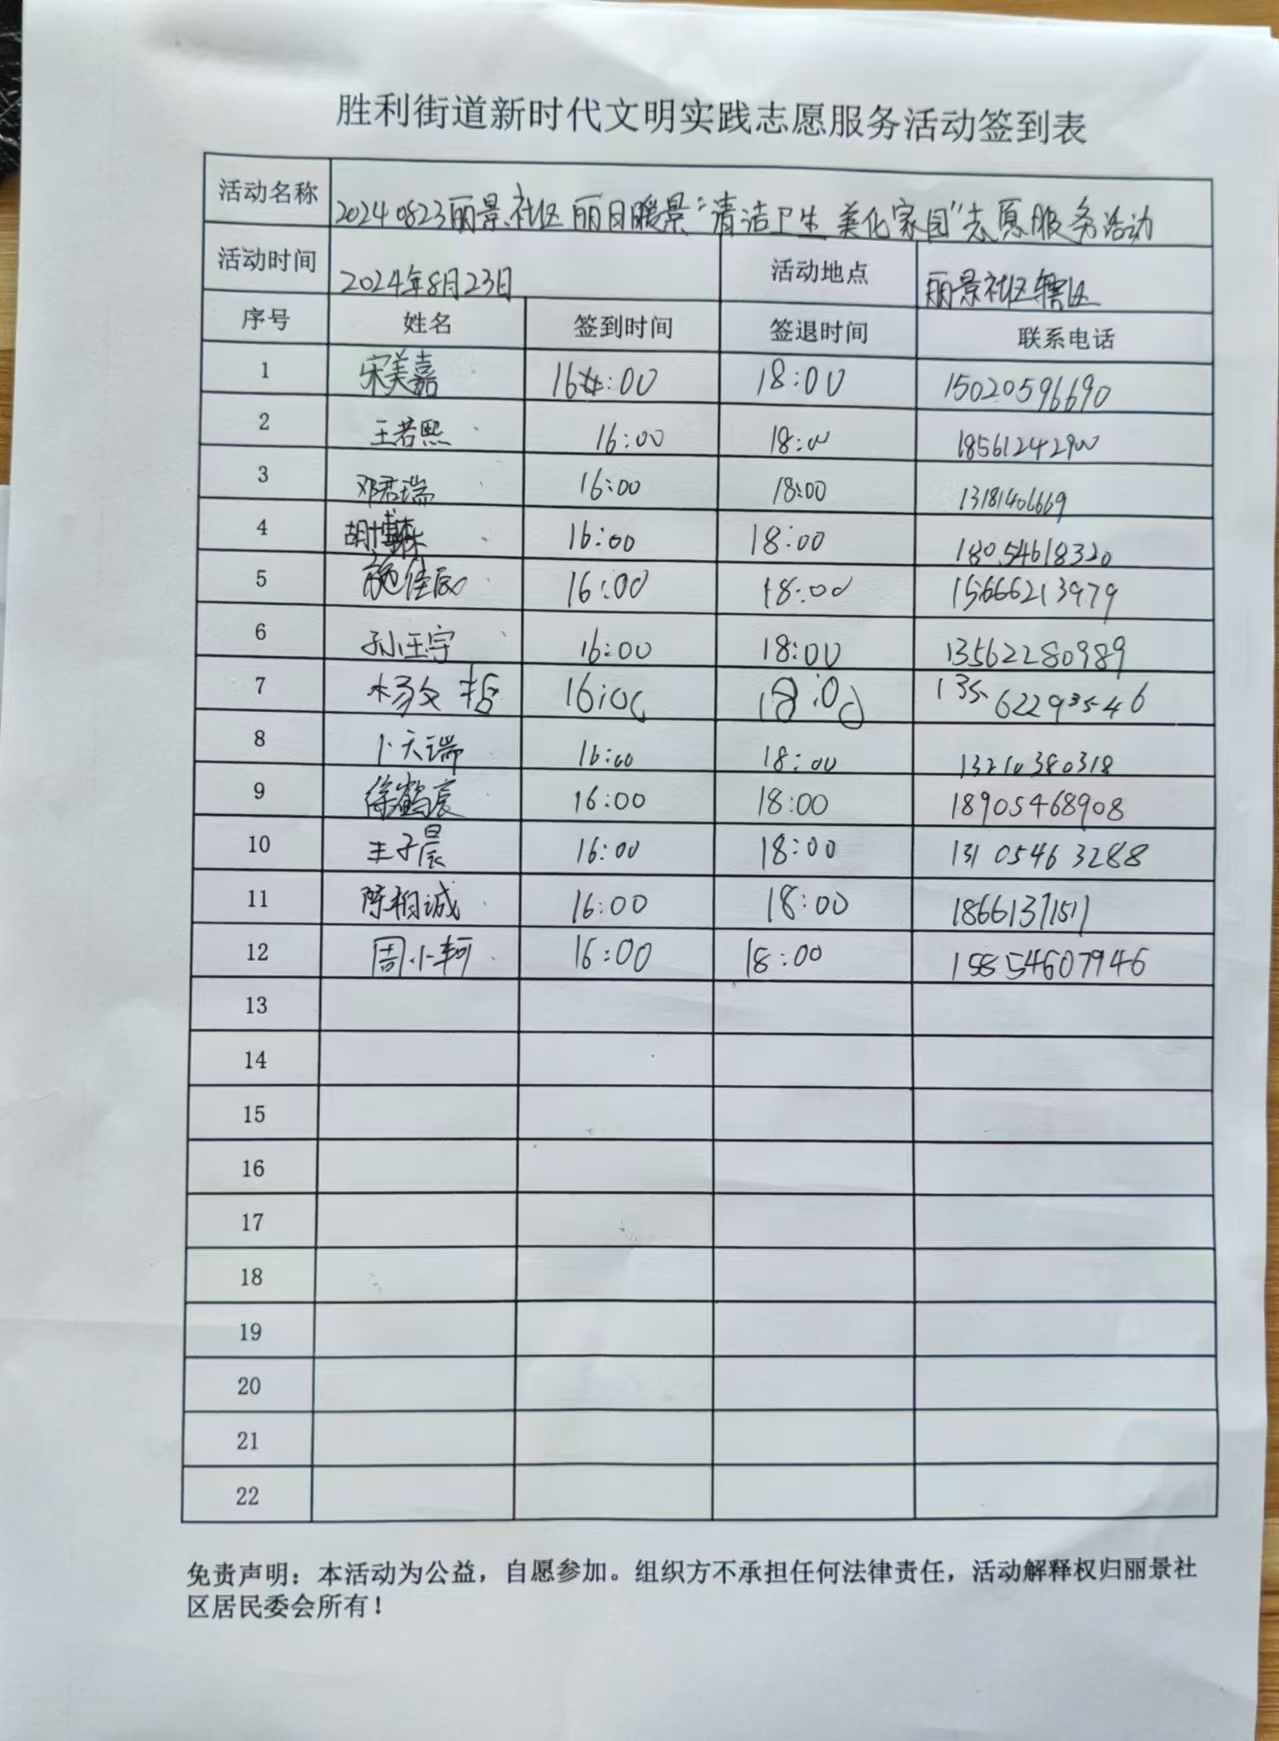 胜利街道新时代文明实践志愿服务活动签到表
活动名称 20240823丽景社区丽日暖景"清洁卫生 美化家园"志愿服务活动
活动时间 2024年8月23日 活动地点 丽景社区辖区
序号 姓名 签到时间 签退时间 联系电话
1 宋美嘉 16:00 18:00 15020596690
2 王若熙 16:00 18:00 18561242900
3 邓君瑞 16:00 18:00 13181406669
4 胡博森 16:00 18:00 18054618320
5 施佳辰 16:00 18:00 15666213979
6 孙王宇 16:00 18:00 13562280989
7 杨文哲 16:00 18:00 13562293546
8 卜天瑞 16:00 18:00 13210380318
9 徐鹤宸 16:00 18:00 18905468908
10 王子晨 16:00 18:00 13105463288
11 陈柏诚 16:00 18:00 18661371511
12 周小轲 16:00 18:00 15854607946
13
14
15
16
17
18
19
20
21
22
免责声明：本活动为公益，自愿参加。组织方不承担任何法律责任，活动解释权归丽景社
区居民委会所有！